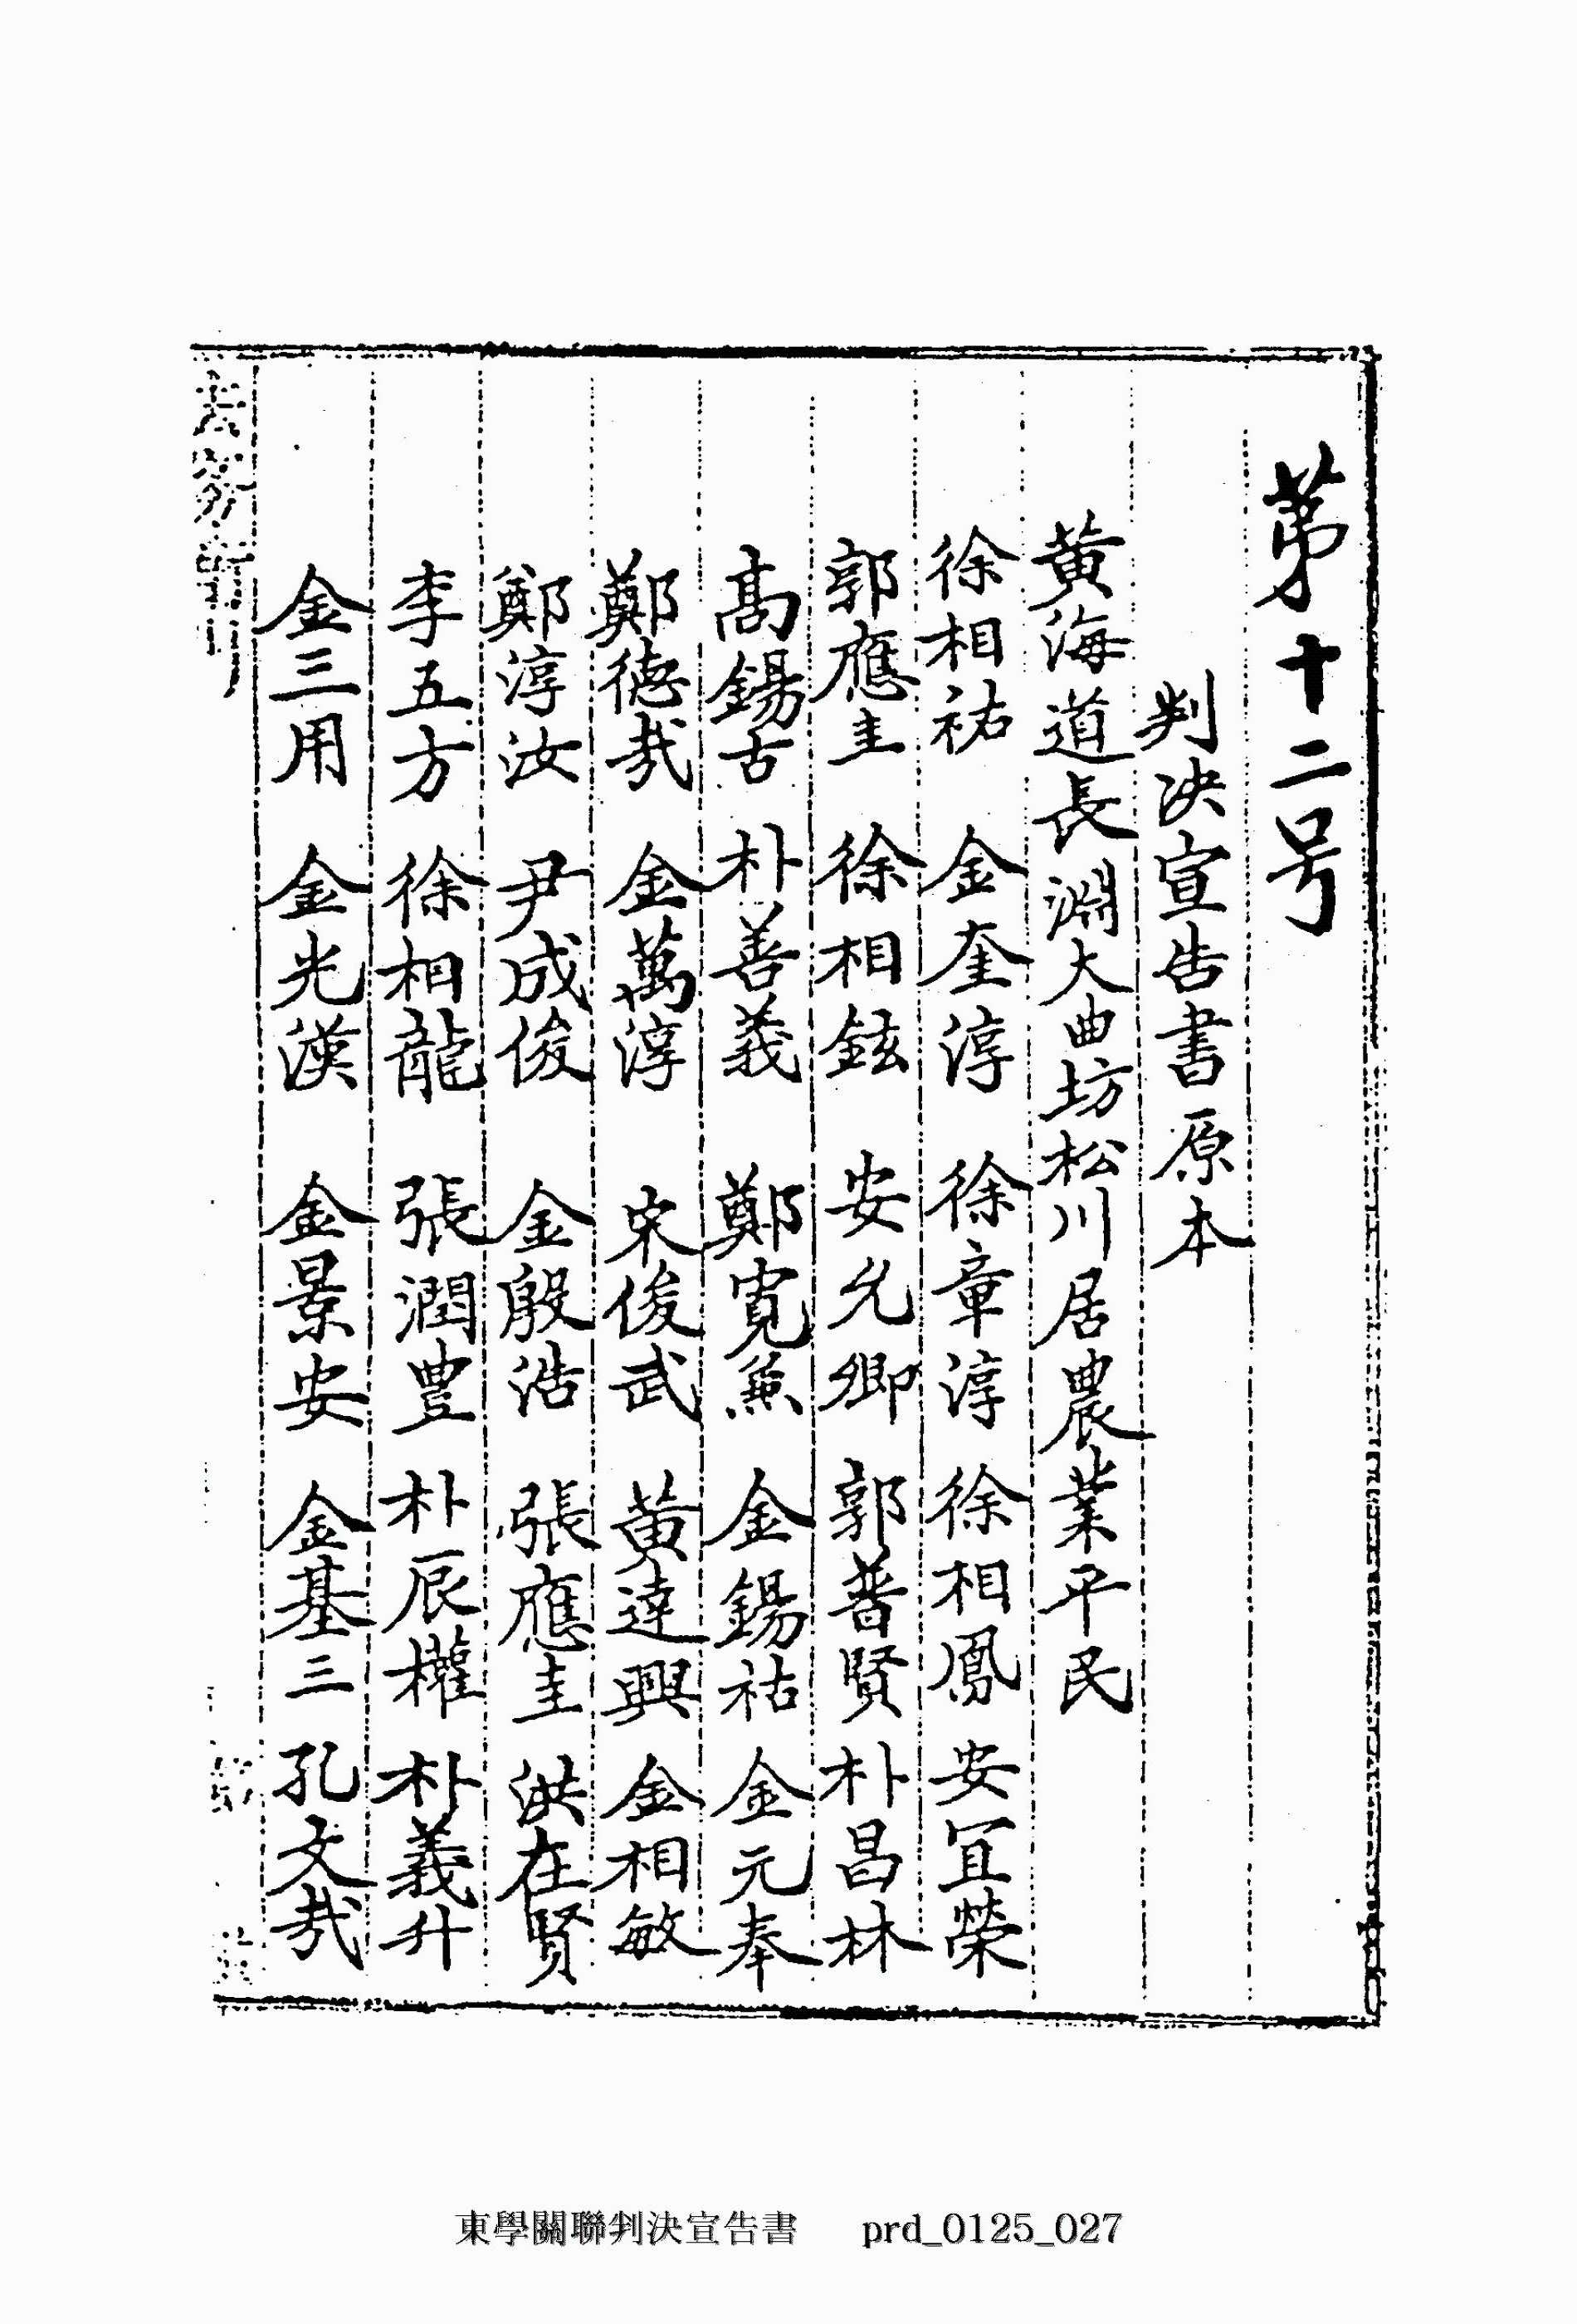 第十二号
判决宣告書原本
黃海道長淵大曲坊松川居農業平民
徐相祐 金奎淳 徐章淳 徐相鳳 安宜榮
郭應圭 徐相鉉 安允卿 郭普賢 朴昌林
高錫古 朴善義 鄭寬兼 金錫祜 金元奉
鄭德哉 金萬淳 宋俊武 黃達興 金相敏
鄭淳汝 尹成俊 金殷浩 張應圭 洪在賢
李五方 徐相龍 張潤豊 朴辰權 朴義升
金三用 金光漢 金景安 金基三 孔文哉
法務衙
東學關聯判決宣告書 prd_0125_027